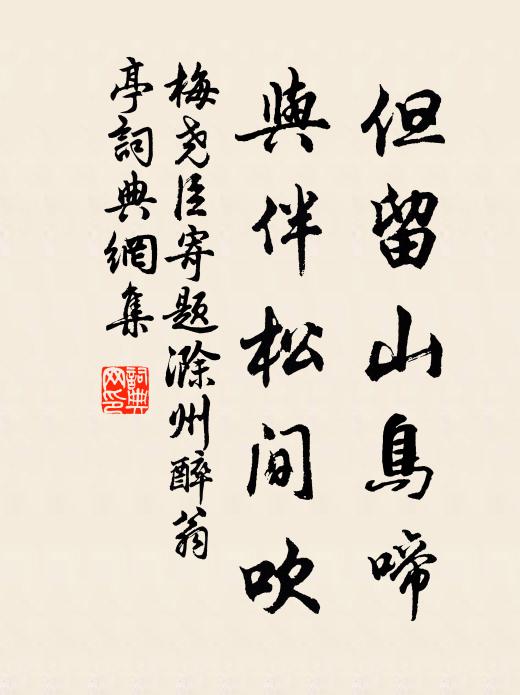 但留山鳥啼
與伴松間吹
梅尧臣寄題滁州醉翁
亭詞典網集
詞典
网印